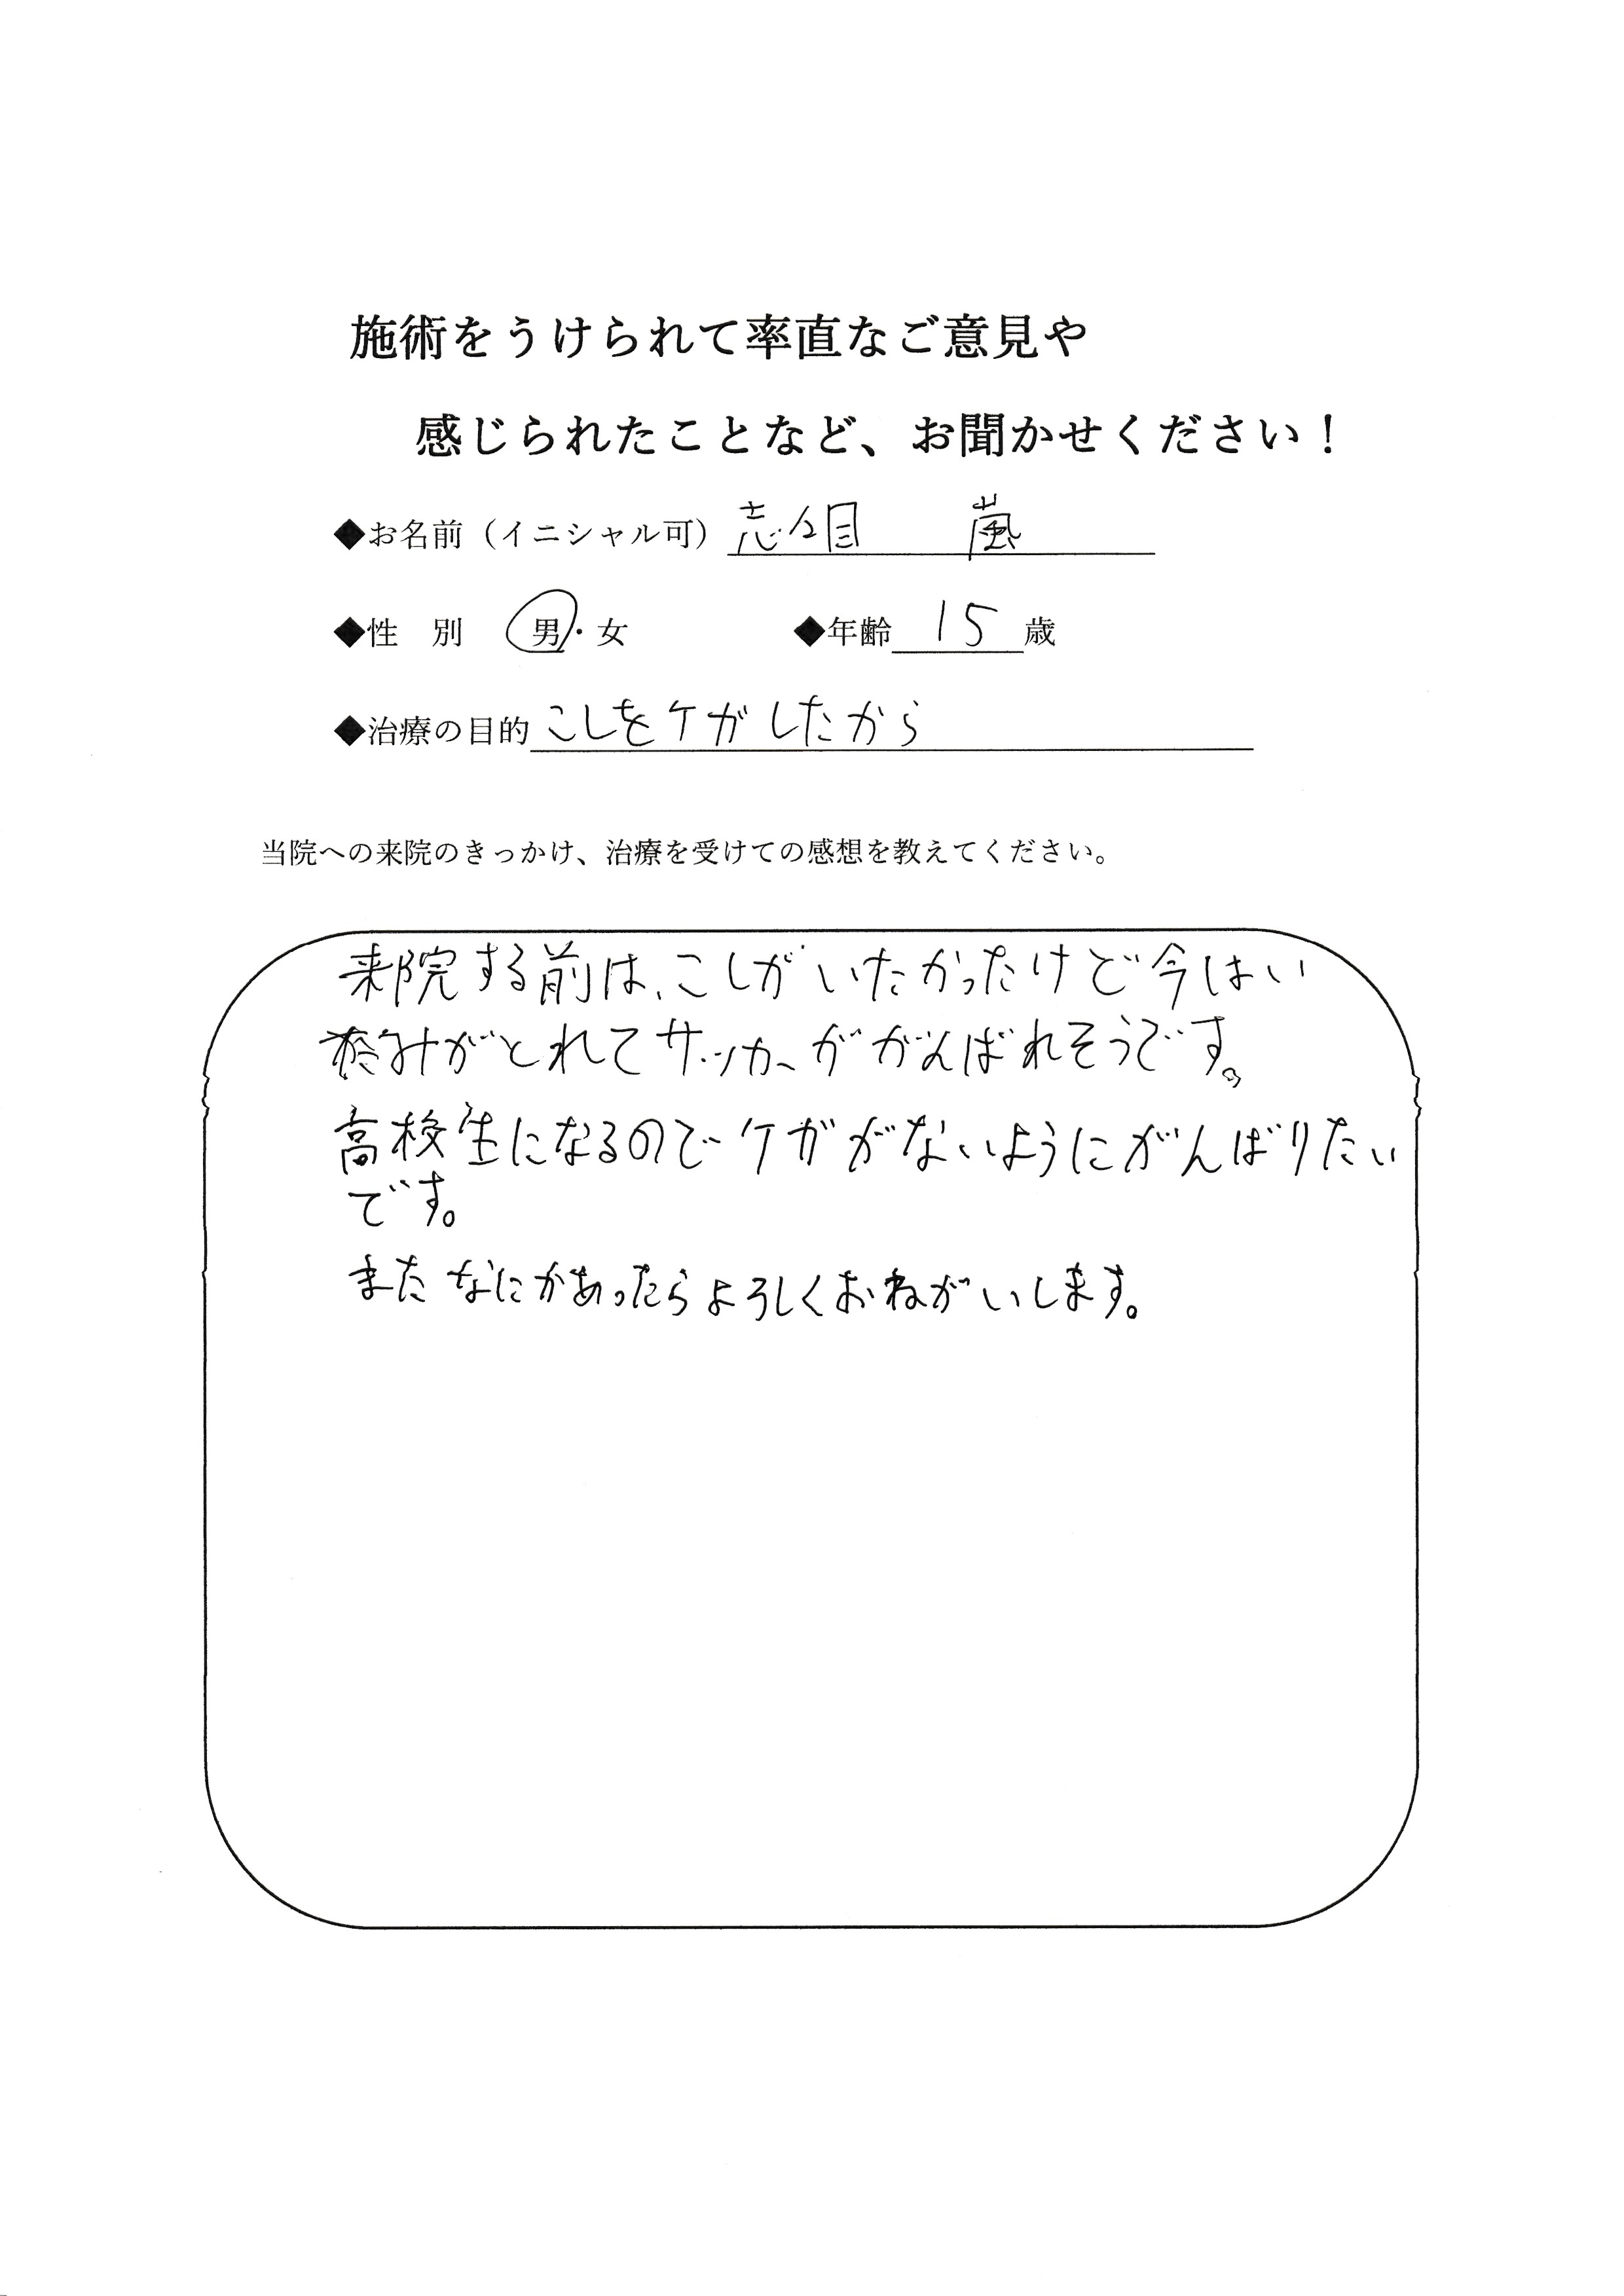 施術をうけられて率直なご意見や
感じられたことなど、お聞かせください！
◆お名前（イニシャル可） 志々目 嵐
◆性 別 男・女 ◆年齢 15 歳
◆治療の目的 こしをケガしたから
当院への来院のきっかけ、治療を受けての感想を教えてください。
来院する前は、こしがいたかったけど今はい
みがとれてサッカーががんばれそうです。
高校生になるのでケガがないようにがんばりたい
です。
またなにかあったらよろしくおねがいします。